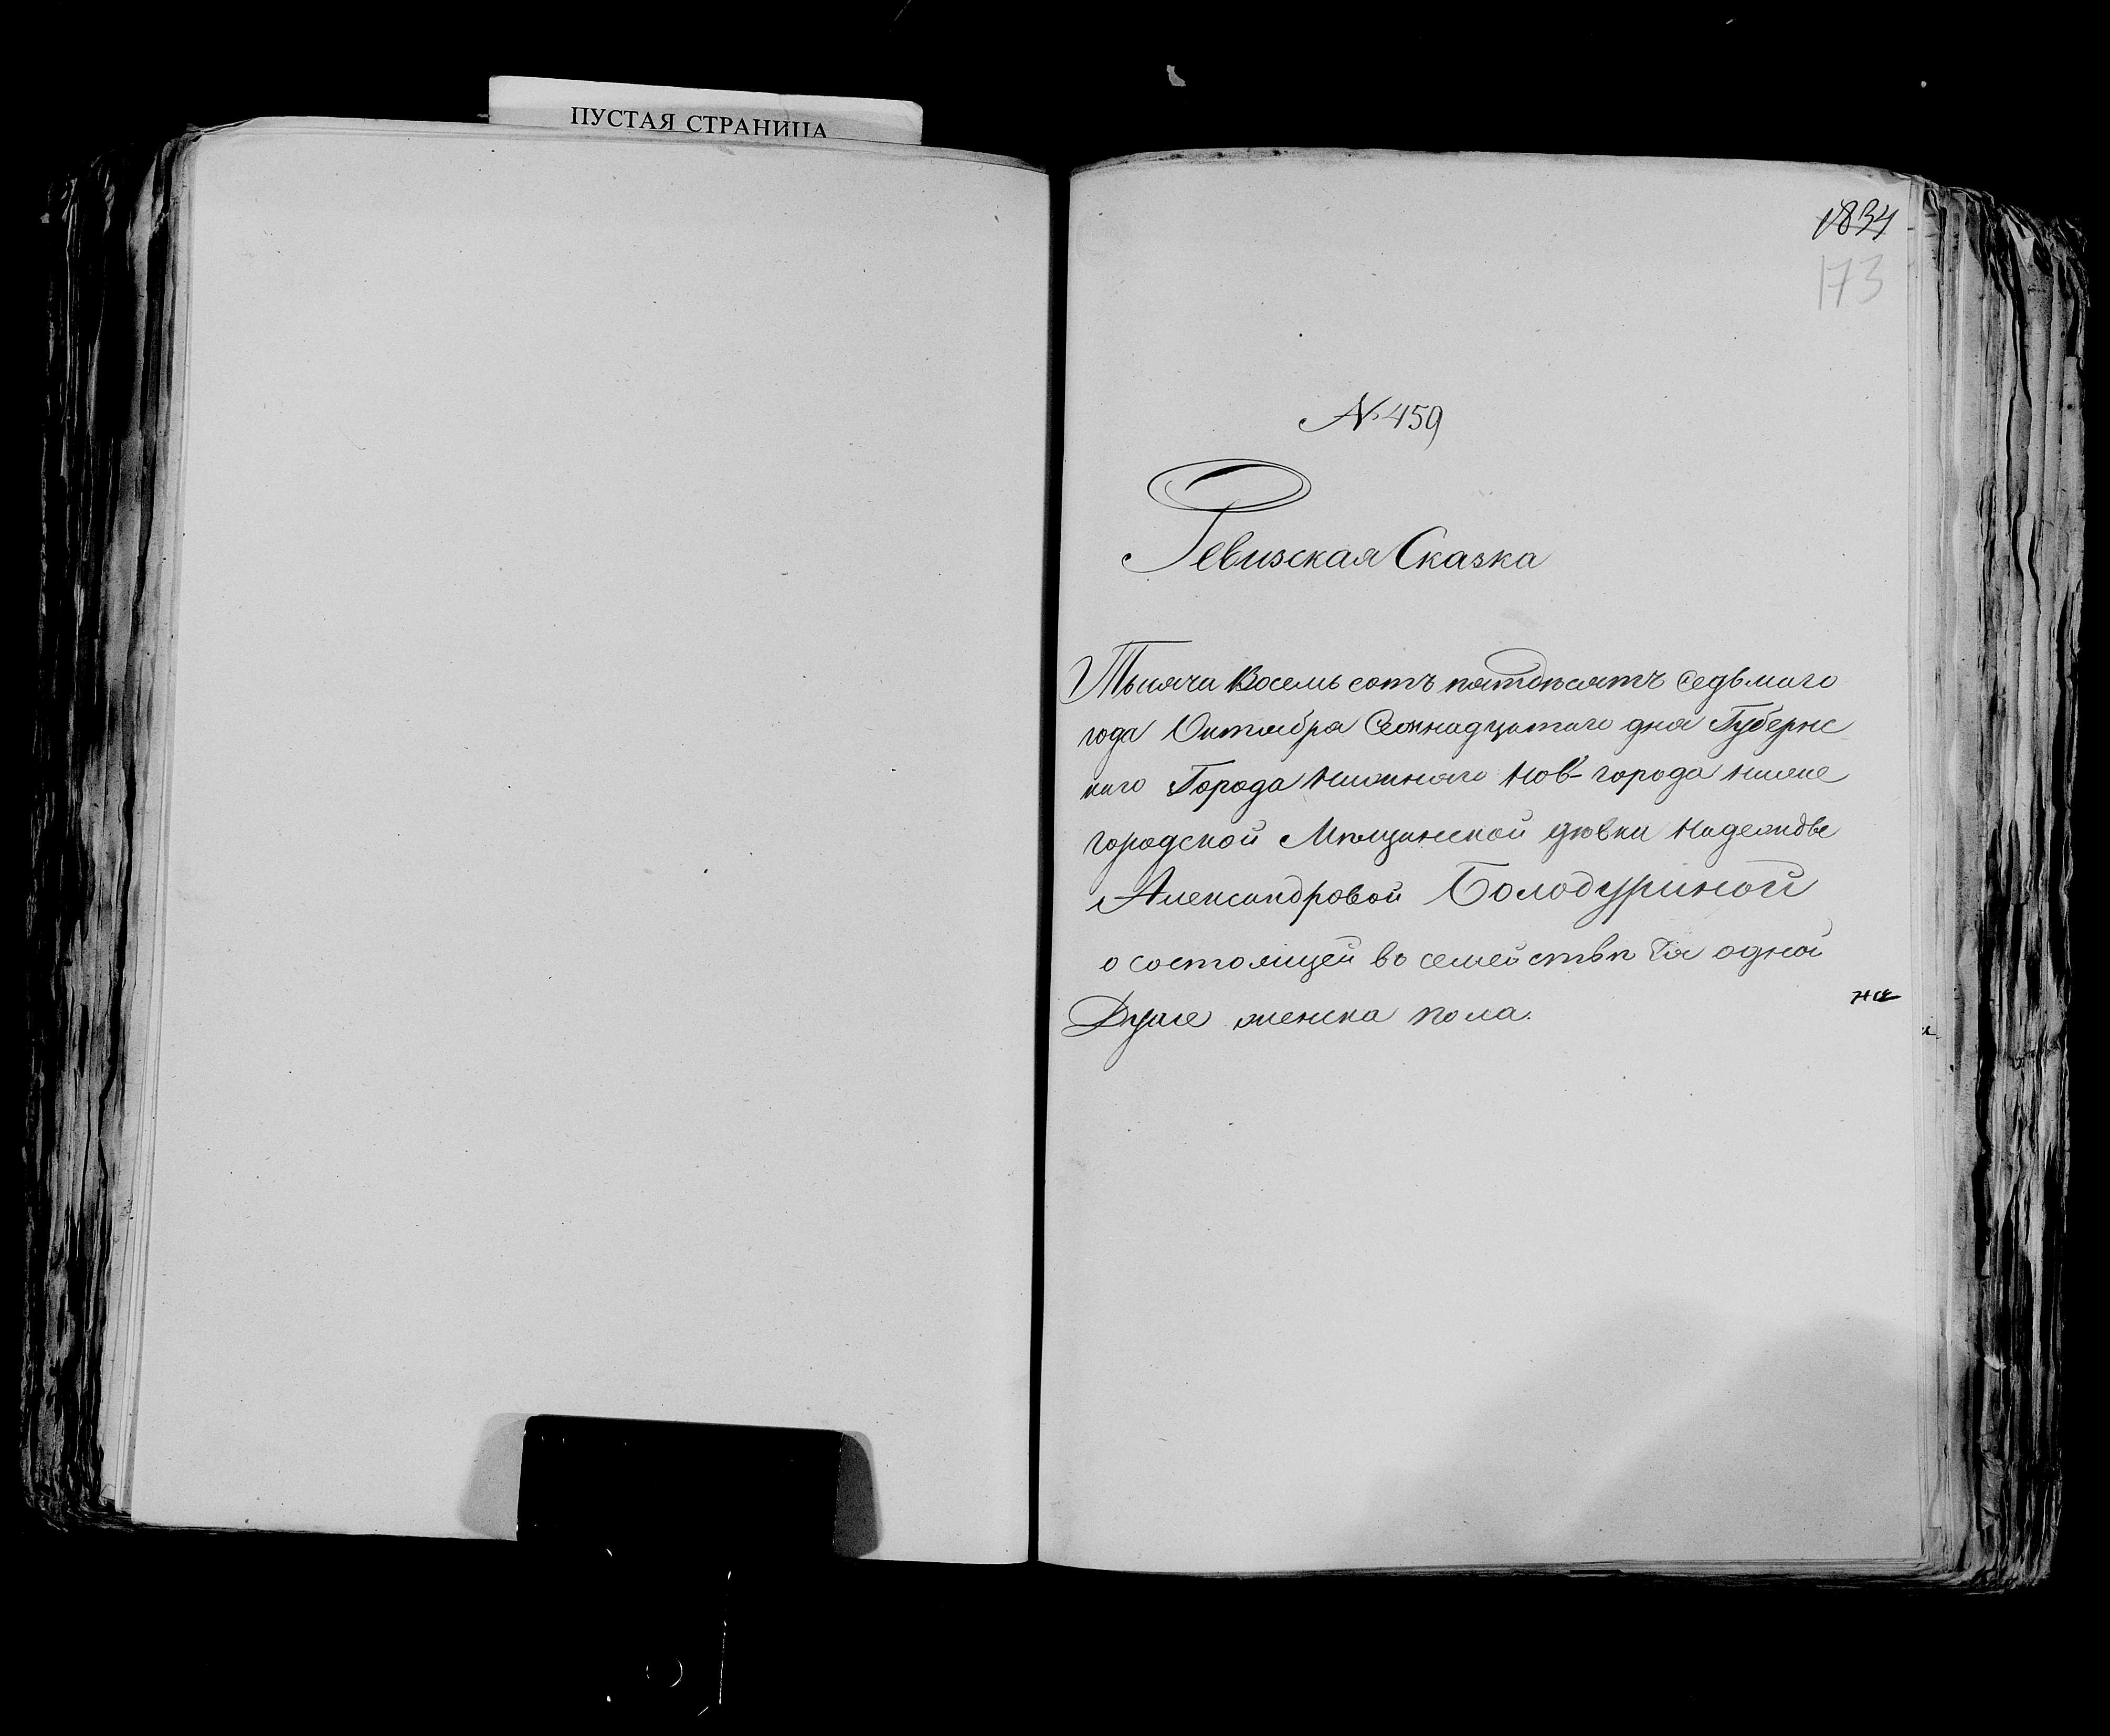 ПУСТАЯ СТРАНИЦА
1834
173
№ 459
Ревизская Сказка
Тысяча Восемь сотъ пятдѣсятъ седьмаго
года Октября Семнадцатаго дня Губернс
каго Города Нижняго Нов-города ниже
городской Мѣщанской дѣвки Надежды
Александровой Болодуриной
о состоящей во семействѣ ея одной
Душе женска пола.